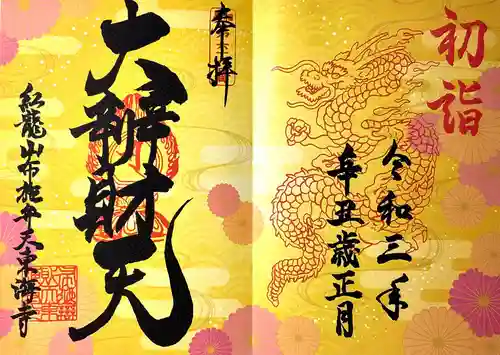 初詣
令和三年
辛丑歳正月
奉拝
大辨財天
紅龍山布施弁天東海寺